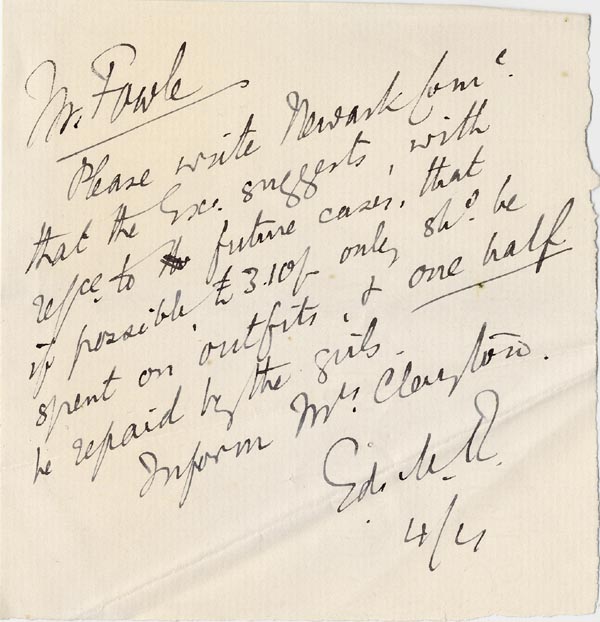 Mr. Fowle
Please write Newark Comee.
that the Exec. suggests, with
refce. to future cases, that
if possible, £3.10/- only shd. be
spent on outfits, & one half
be repaid by the girls.
Inform Mrs. Clayton.
Ed. M. R.
4/4